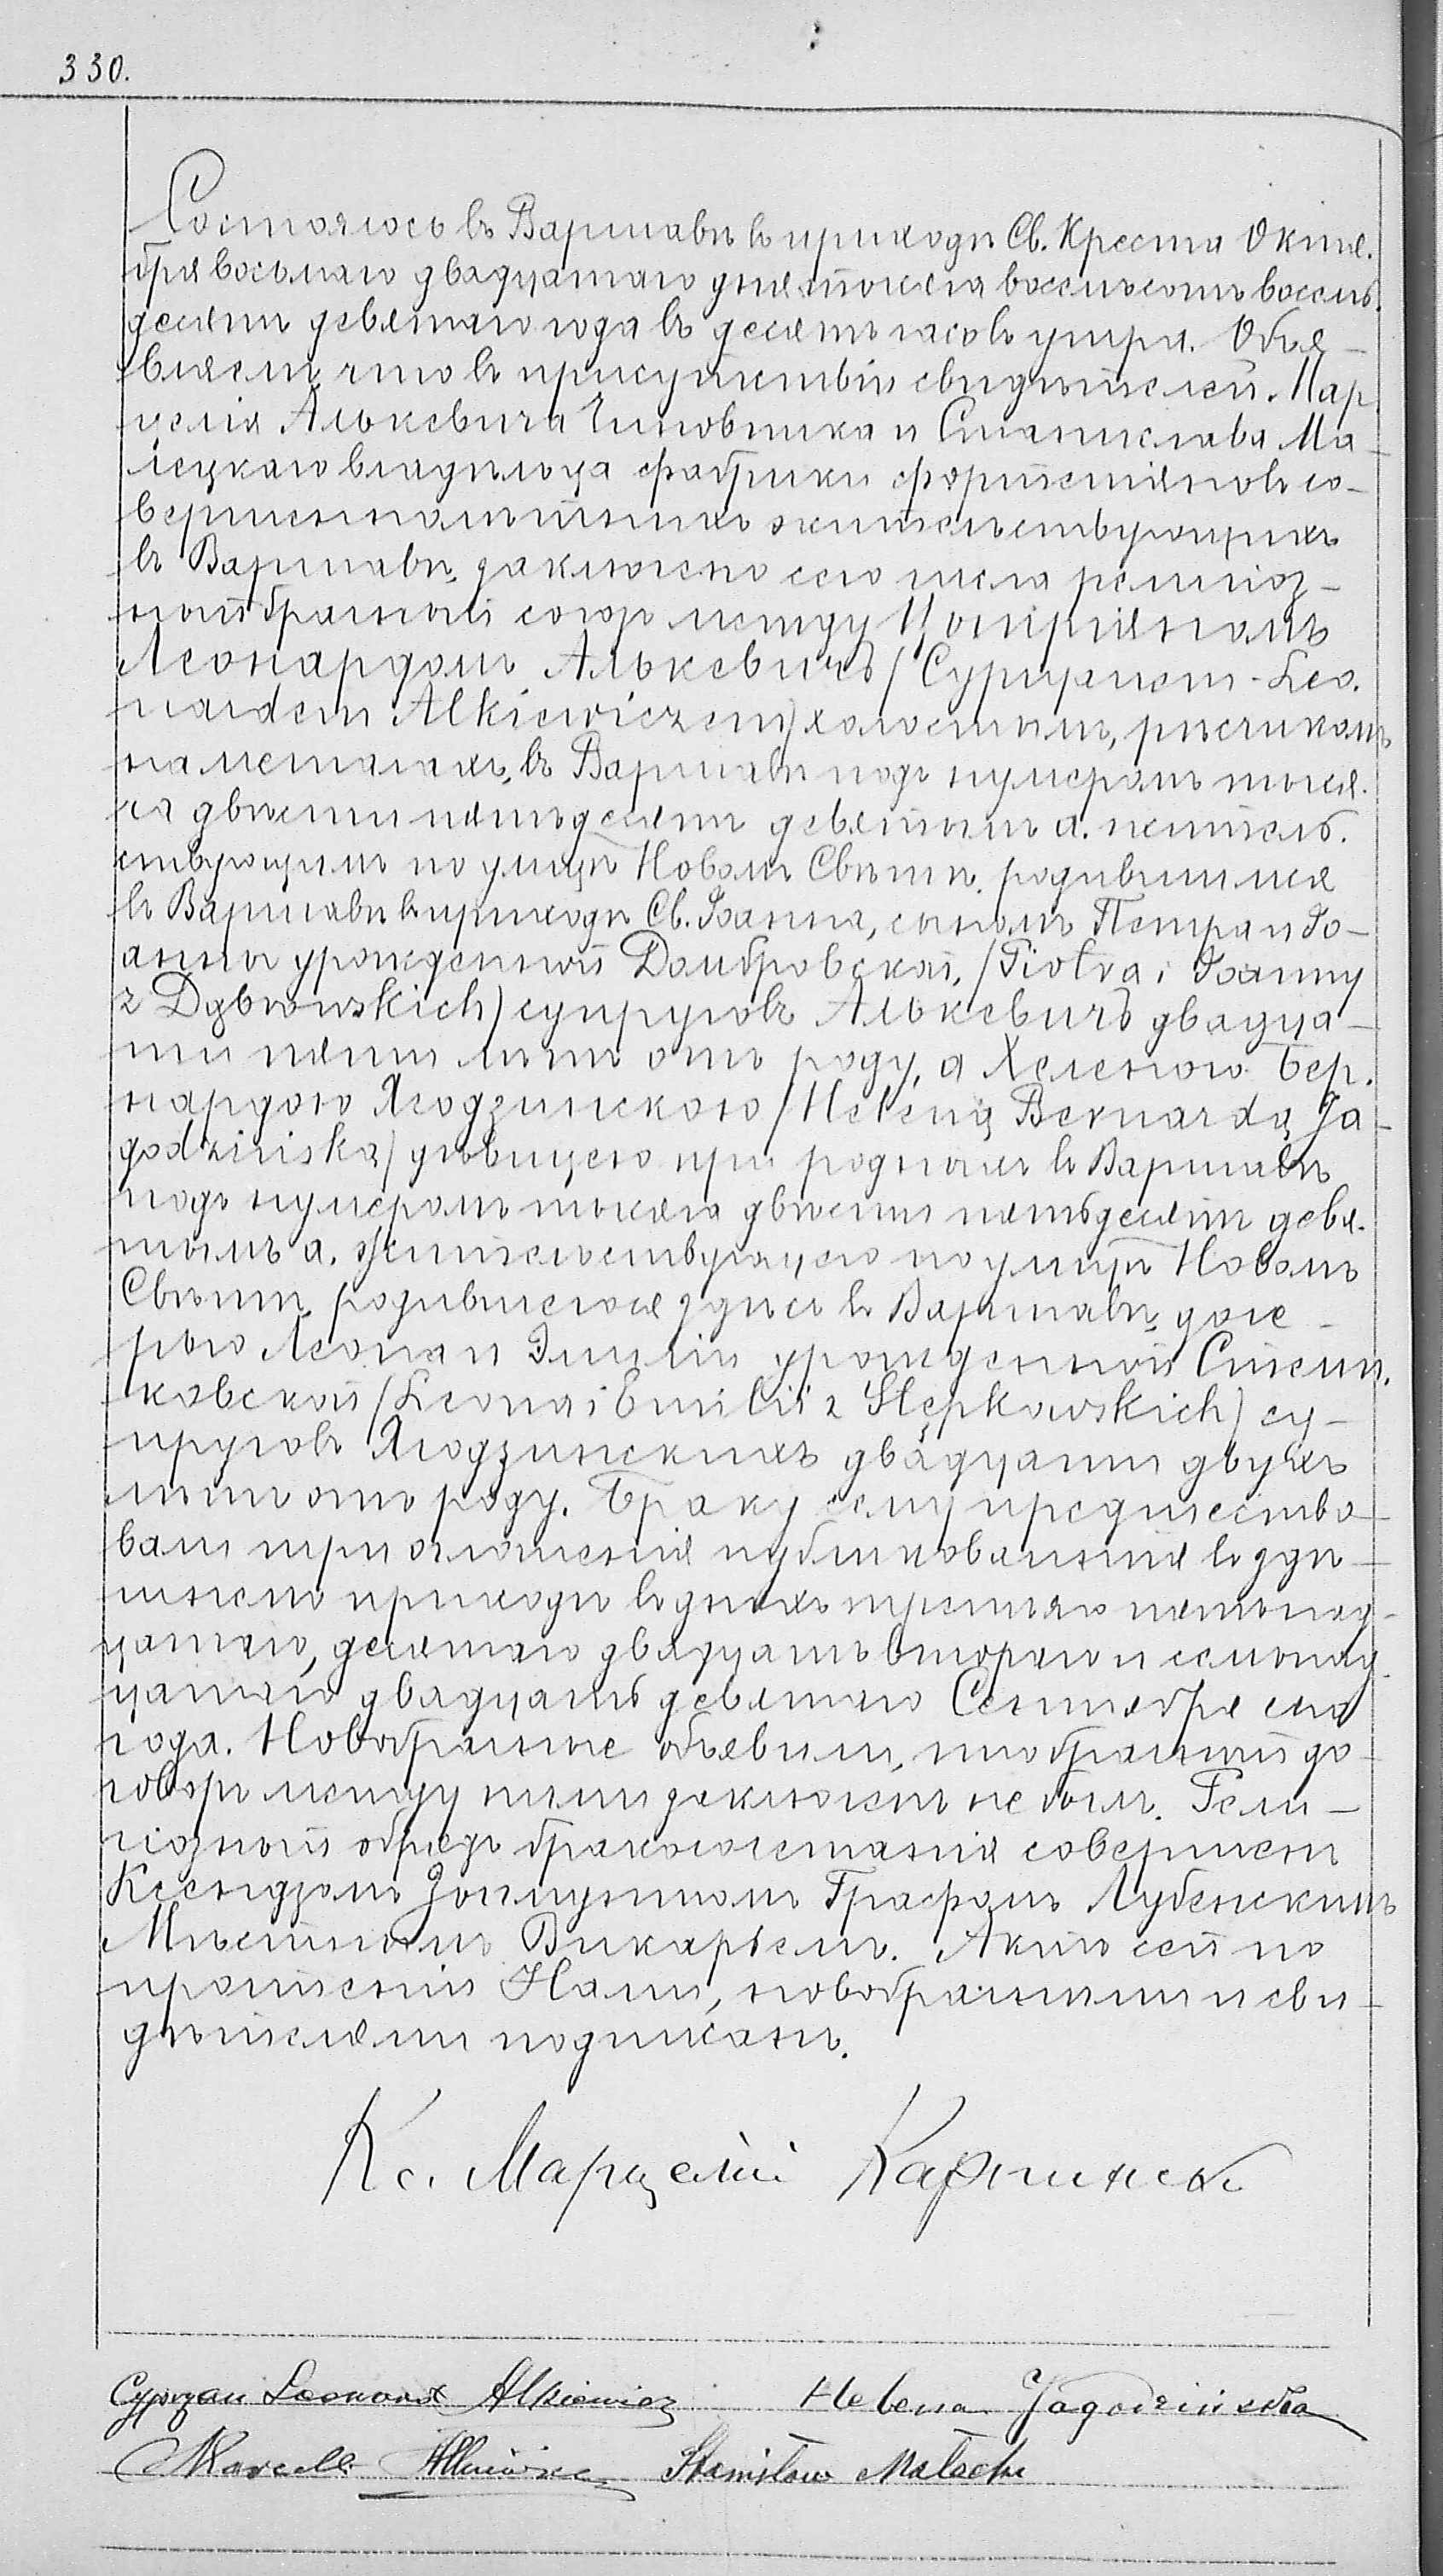 330.
Состоялось въ Варшавѣ въ приходѣ Св. Креста Октя-
бря восьмаго двадцатаго дня тысяча восемьсотъ восемь-
десятъ девятаго года въ десять часовъ утра. Объя-
вляемъ, что въ присутствіи свидѣтелей. Мар-
целія Алькевича Чиновника и Станислава Ма-
лецкаго владѣльца фабрики фортепіяновъ со-
вершеннолѣтнихъ жительствующихъ
въ Варшавѣ, заключено сего числа религіоз-
ный брачный союзъ между Ципріяномъ
Леонардомъ Алькевичъ (Cypryanem-Leo-
nardem Alkiewiczem) холостымъ, рѣщикомъ
на металахъ, въ Варшавѣ подъ нумеромъ тыся-
ча двѣсти пятьдесятъ девятымъ а. жительс-
ствующимъ по улицѣ Новомъ Свѣтѣ, родившимся
въ Варшавѣ въ приходѣ Св. Іоанна, сыномъ Петра и Іо-
анны урожденной Домбровской, (Piotra i Joanny
z Dąbrowskich) супруговъ Алькевичъ двадца-
ти пяти лѣтъ отъ роду, а Хеленою Бер-
нардою Ягодзинскою (Heleną Bernardą Ja-
godzińską) дѣвицею при родныхъ въ Варшавѣ
подъ нумеромъ тысяча двѣсти пятьдесятъ девя-
тымъ а. жительствующею по улицѣ Новомъ
Свѣтѣ, родившеюся здѣсь въ Варшавѣ, доче-
рью Леона и Эмиліи урожденной Стемп-
ковской (Leona i Emilii z Stępkowskich) су-
пруговъ Ягодзинскихъ двадцати двухъ
лѣтъ отъ роду. Браку сему предшество-
вали три оглашенія публикованныя въ здѣ-
шнемъ приходѣ въ дняхъ третьяго пятонад-
цатаго, десятаго двадцать втораго и семонад-
цатаго двадцать девятаго Сентября сего
года. Новобрачные объявили, что брачный до-
говоръ между ними заключенъ не былъ. Рели-
гіозный обрядъ бракосочетанія совершенъ
Ксендзомъ Зыгмунтомъ Графомъ Лубенскимъ
Мѣстнымъ Викаріемъ. Актъ сей по
прочтеніи Нами, новобрачными и сви-
дѣтелями подписанъ.
Кс. Марцелій Карпинск
Cypryan Leonard Alkiewicz Helena Jagodzińska
Marcelli Alkiewicz Stanisław Małecki